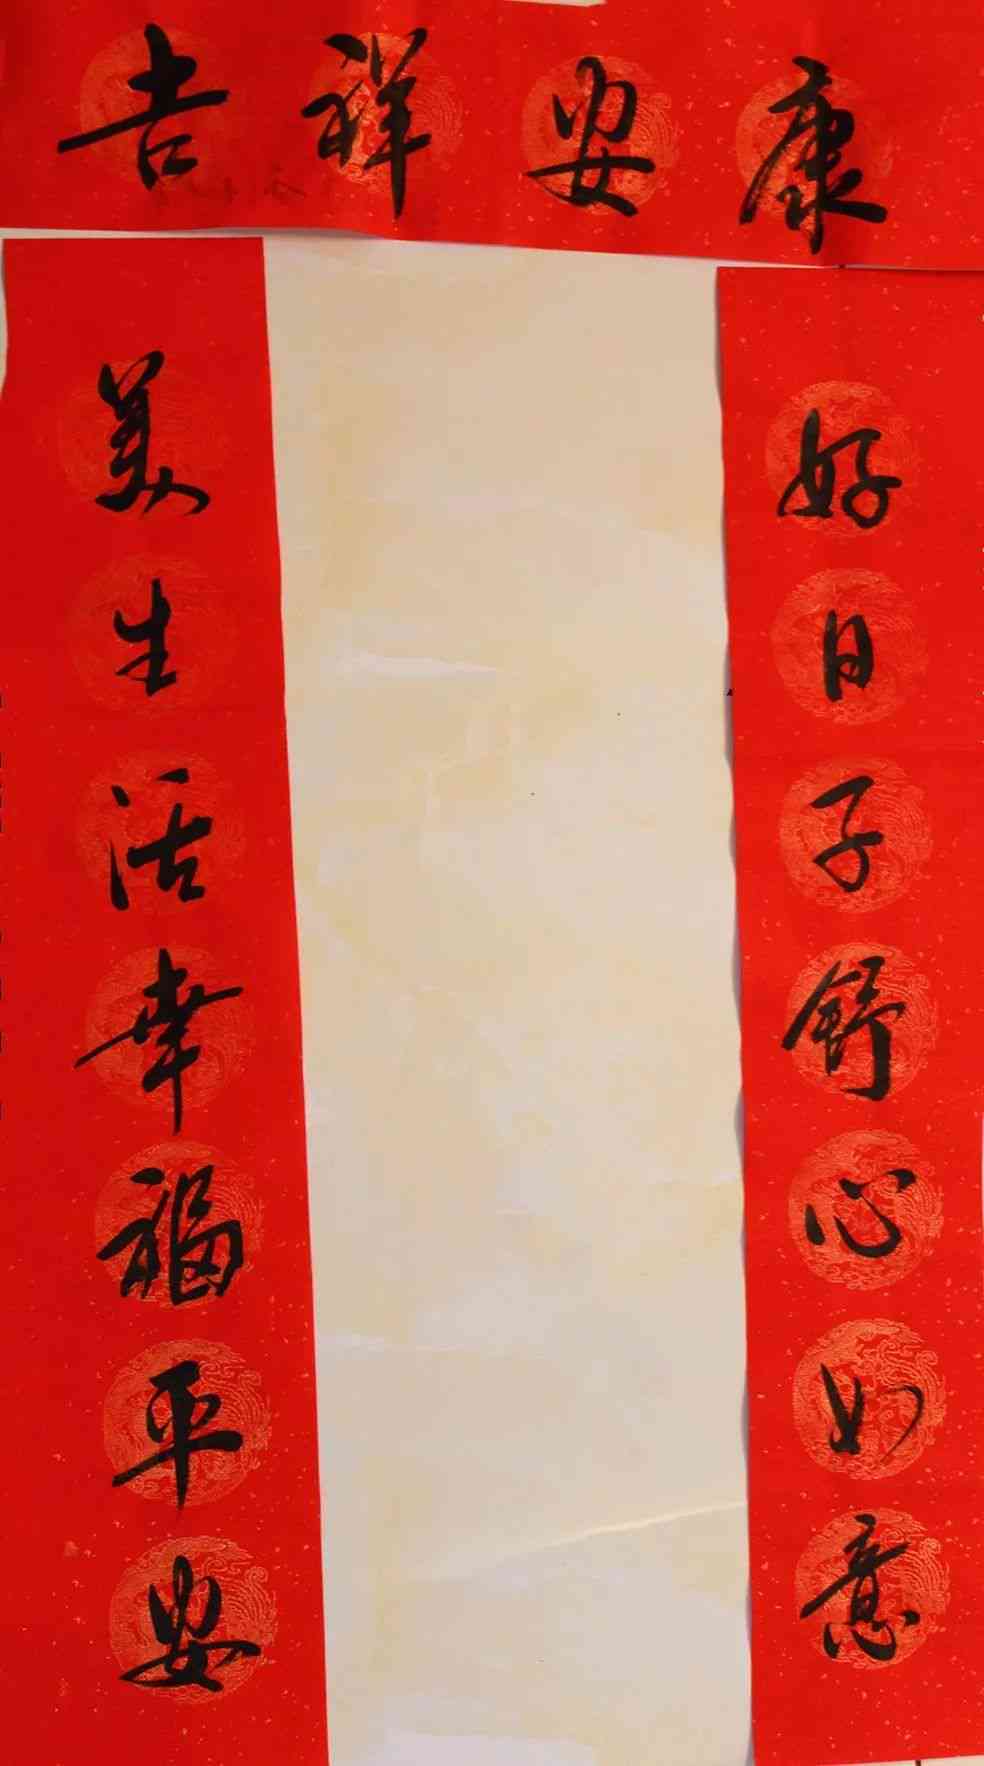 吉祥安康
好日子舒心如意
美生活幸福平安